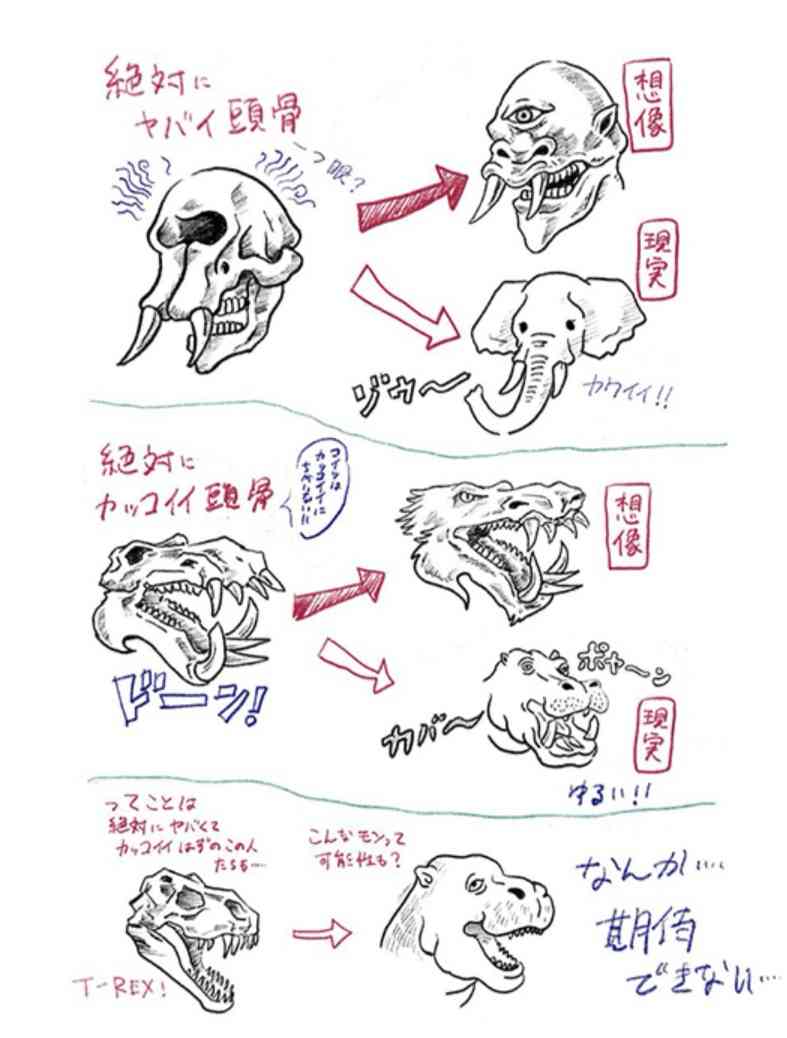 絶対に
ヤバイ頭骨
一つ眼?
想像
現実
ゾウ〜
カワイイ!!
絶対に
カッコイイ頭骨
コイツは
カッコイイに
ちがいない!!
想像
ドーン!
ポャーン
カバ〜
現実
ゆるい!!
ってことは
絶対にヤバくて
カッコイイはずのこの人
たちも…
こんなモンって
可能性も?
T-REX!
なんか…
期待
できない…